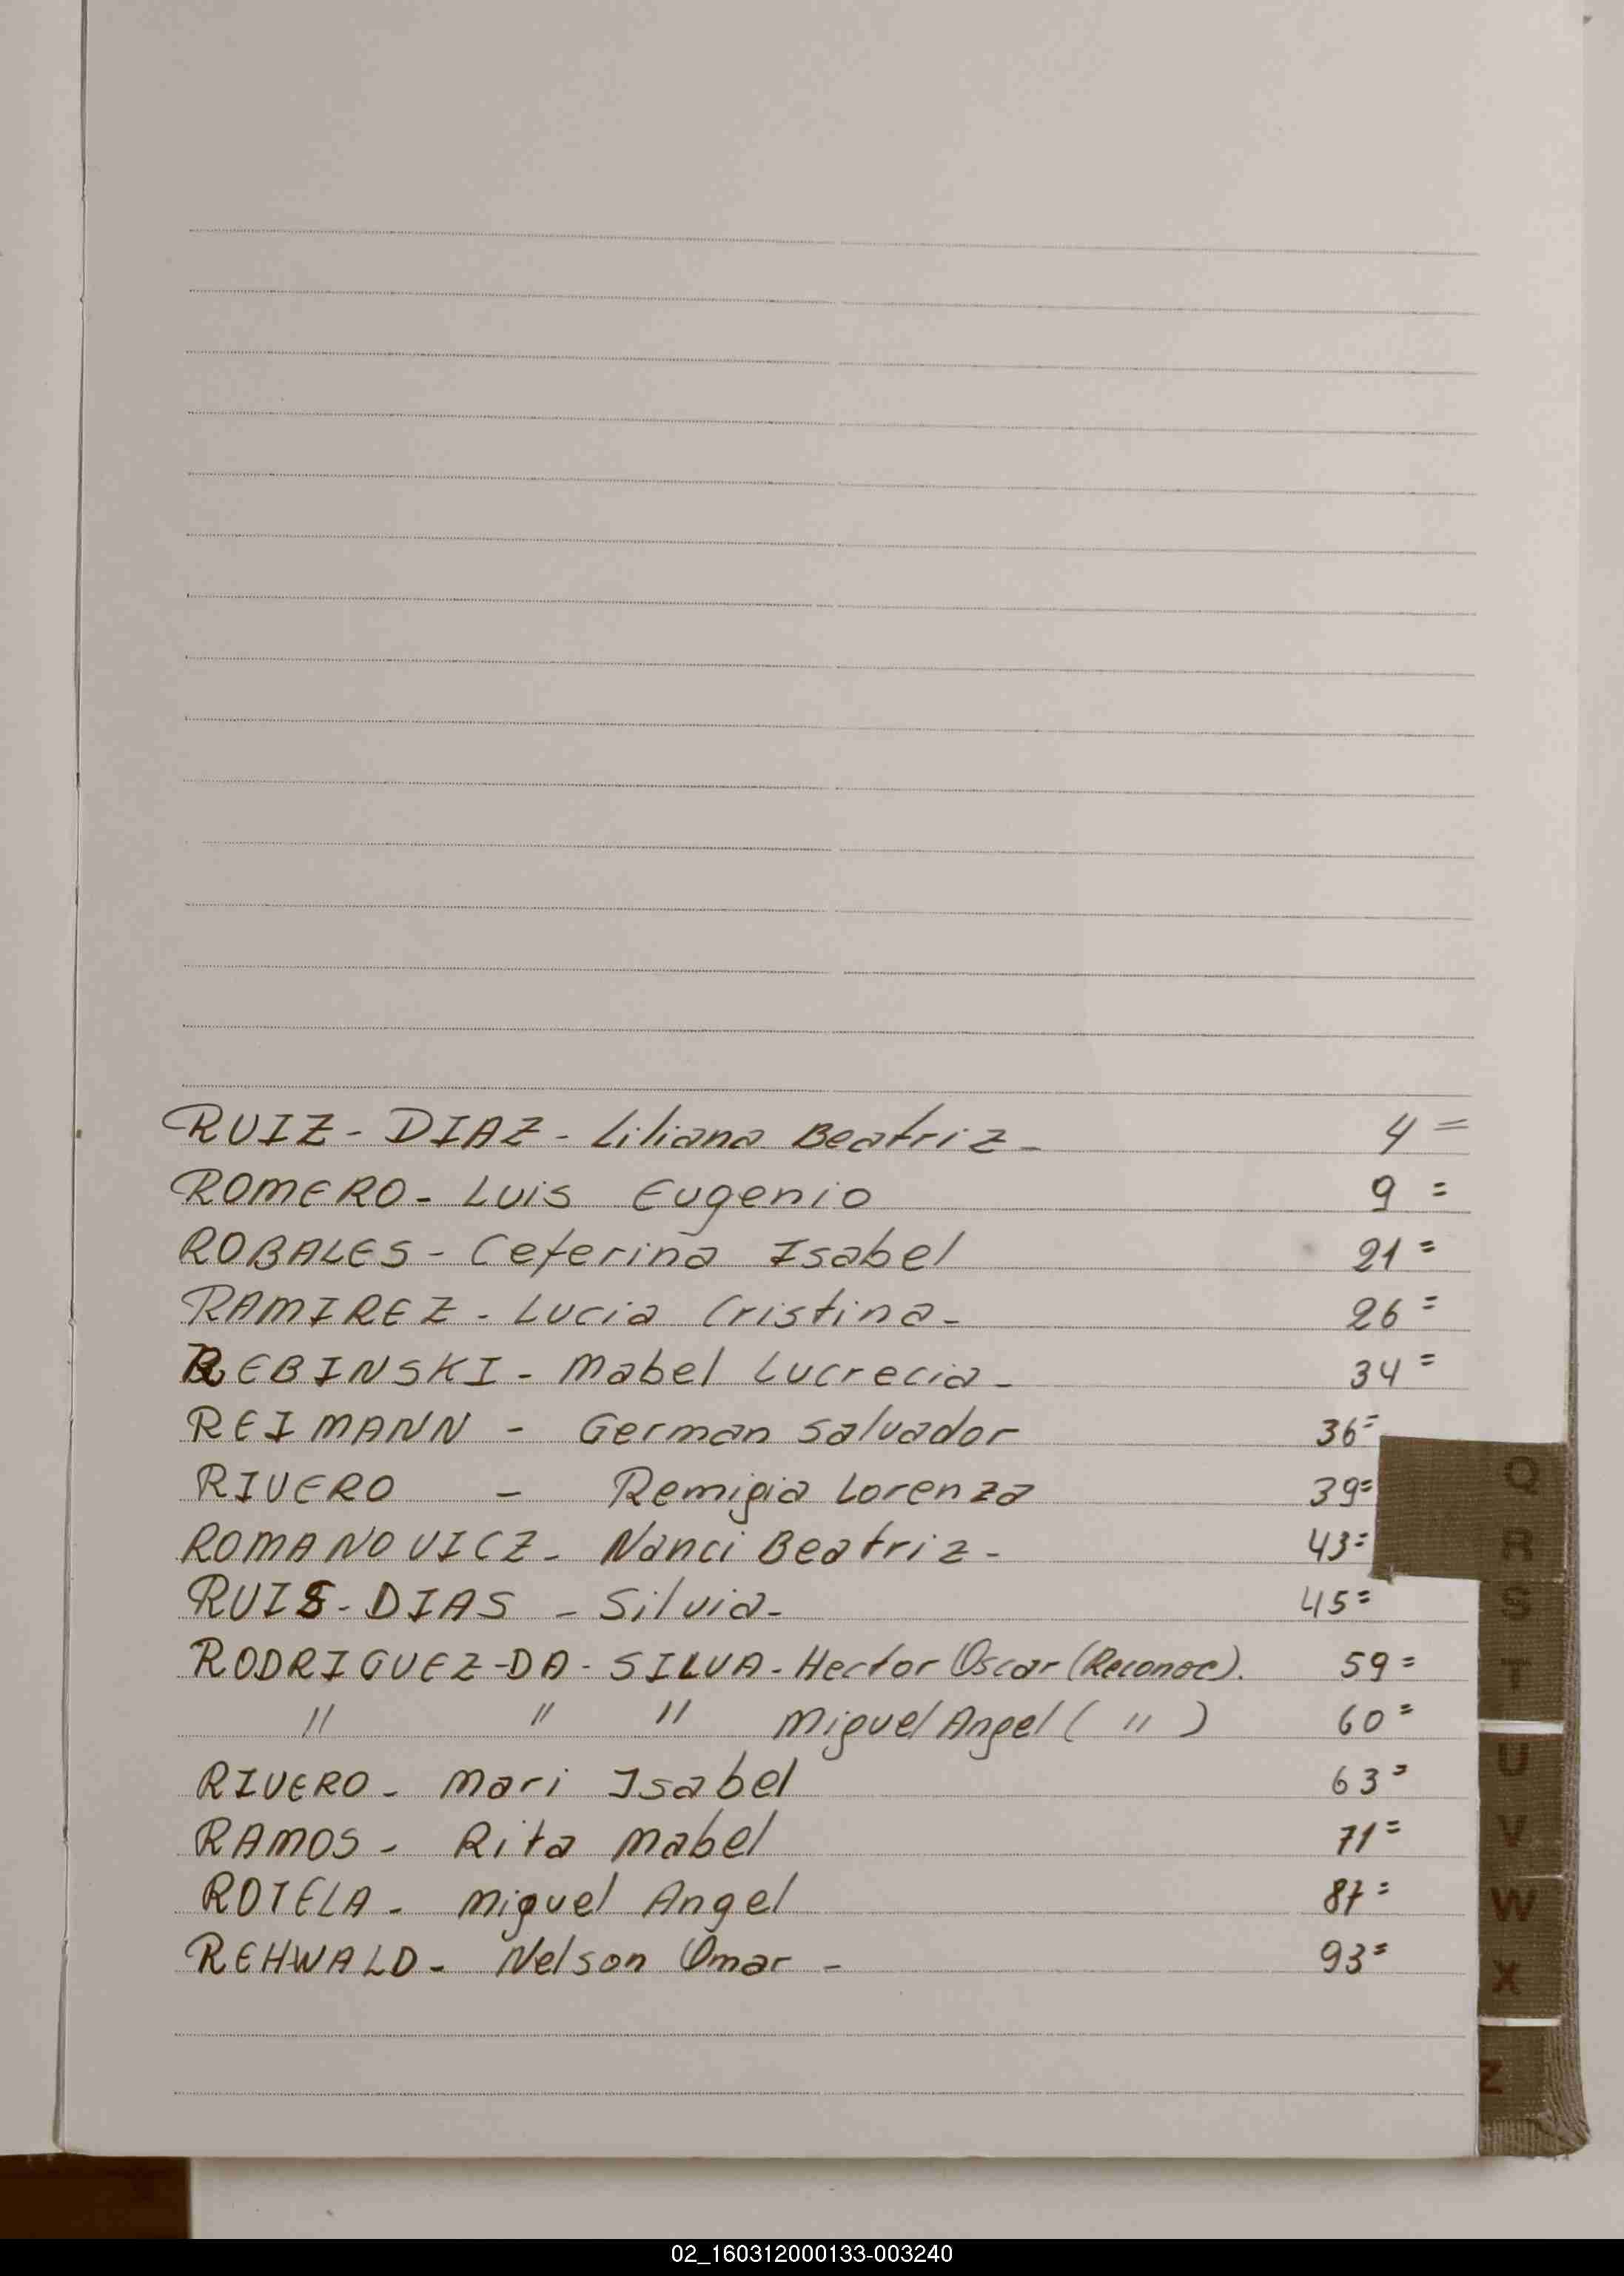 RUIZ - DIAZ - Liliana Beatriz - 4 =
ROMERO - Luis Eugenio 9 =
ROBALES - Ceferina Isabel 21 =
RAMIREZ - Lucia Cristina - 26 =
REBINSKI - Mabel Lucrecia - 34 =
REIMANN - German Salvador 36 =
RIVERO - Remigia Lorenza 39 =
ROMANOVICZ - Nanci Beatriz - 43 =
RUIS - DIAS - Silvia - 45 =
RODRIGUEZ - DA - SILVA - Hector Oscar (Reconoc). 59 =
" " " Miguel Angel ( " ) 60 =
RIVERO - Mari Isabel 63 =
RAMOS - Rita Mabel 71 =
ROTELA - Miguel Angel 87 =
REHWALD - Nelson Omar - 93 =
Q
R
S
T
U
V
W
X
Z
02_160312000133-003240